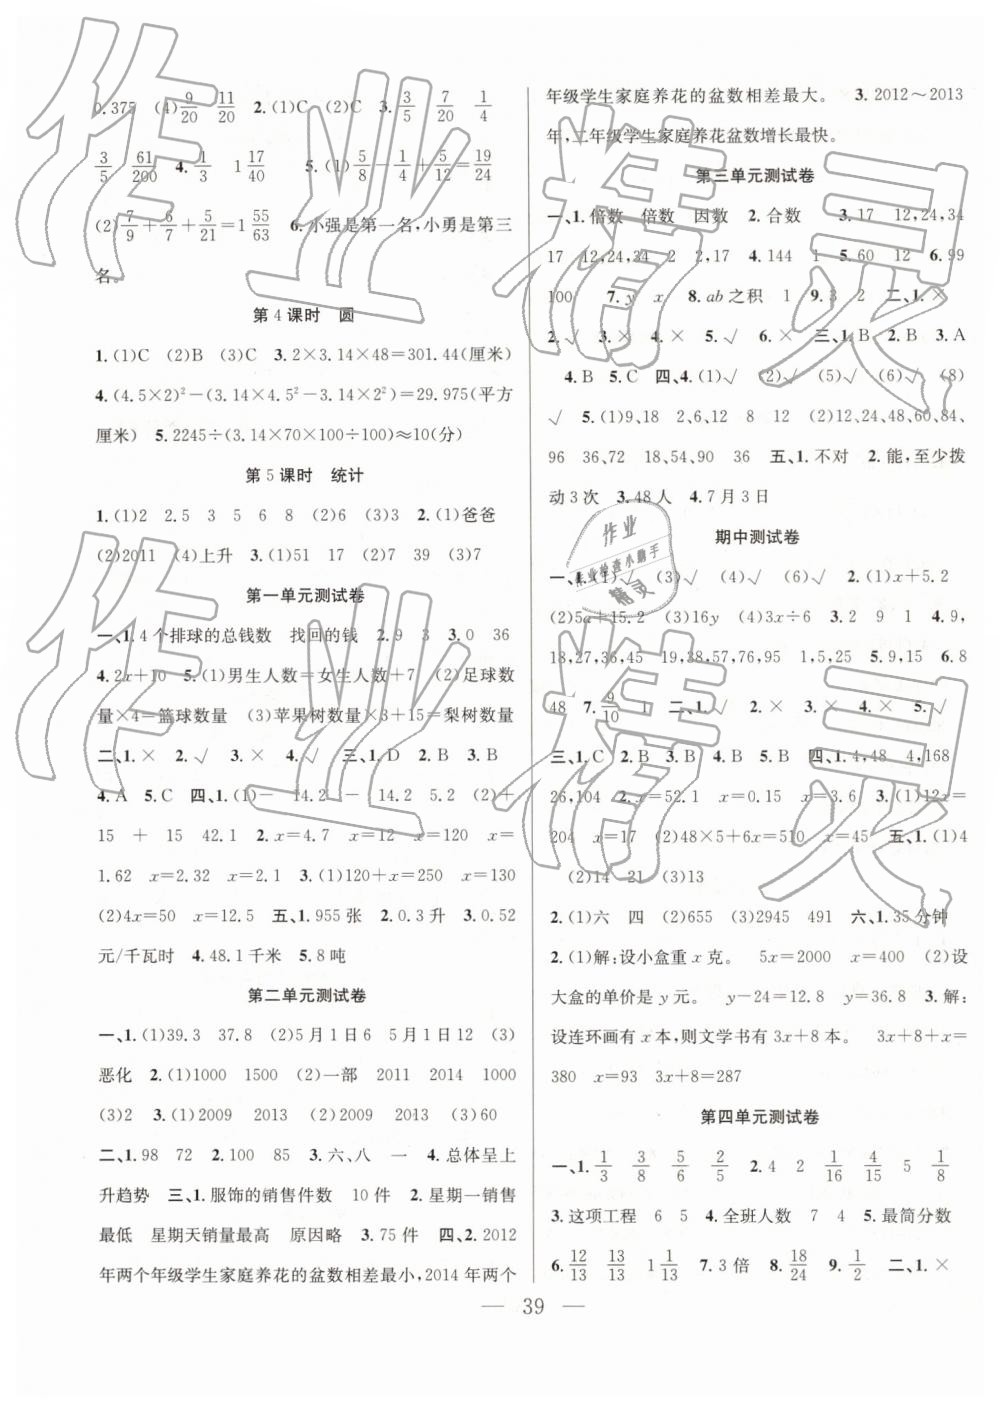 0.375 (4)9/20 11/20 2.(1)C (2)C 3.3/5 7/20 1/4
3/5 61/200 4.1/3 1 17/40 5.(1)5/8−1/4+5/12=19/24
(2)7/9+6/7+5/21=1 55/63 6.小强是第一名,小勇是第三
名。
第4课时 圆
1.(1)C (2)B (3)C 3.2×3.14×48=301.44(厘米)
4.(4.5×2)²−(3.14×4.5²−3.14×2²)=29.975(平方
厘米) 5.2245÷(3.14×70×100÷100)≈10(分)
第5课时 统计
1.(1)2 2.5 3 5 6 8 (2)6 (3)3 2.(1)爸爸
(2)2011 (4)上升 3.(1)51 17 (2)7 39 (3)7
第一单元测试卷
一、1.4个排球的总钱数 找回的钱 2.9 3 3.0 36
4.2x+10 5.(1)男生人数=女生人数+7 (2)足球数
量×4=篮球数量 (3)苹果树数量×3+15=梨树数量
二、1.× 2.√ 3.× 4.√ 三、1.D 2.B 3.B
4.A 5.C 四、1.(1)− 14.2 − 14.2 5.2 (2)+
15 + 15 42.1 2.x=4.7 x=12 x=120 x=
1.62 x=2.32 x=2.1 3.(1)120+x=250 x=130
(2)4x=50 x=12.5 五、1.955张 2.0.3升 3.0.52
元/千瓦时 4.48.1千米 5.8吨
第二单元测试卷
一、1.(1)39.3 37.8 (2)5月1日6 5月1日12 (3)
恶化 2.(1)1000 1500 (2)一部 2011 2014 1000
(3)2 3.(1)2009 2013 (2)2009 2013 (3)60
二、1.98 72 2.100 85 3.六、八 一 4.总体呈上
升趋势 三、1.服饰的销售件数 10件 2.星期一销售
最低 星期天销量最高 原因略 3.75件 四、2.2012
年两个年级学生家庭养花的盆数相差最小,2014年两个
年级学生家庭养花的盆数相差最大。 3.2012～2013
年,二年级学生家庭养花盆数增长最快。
第三单元测试卷
一、1.倍数 倍数 因数 2.合数 3.17 12,24,34
17 12,24,34 2 2,17 4.144 1 5.60 12 6.99
100 7.y x 8.ab之积 1 9.3 2 二、1.×
2.√ 3.× 4.× 5.√ 6.× 三、1.B 2.B 3.A
4.B 5.C 四、4.(1)√ (2)√ (5)√ (6)√ (8)
√ 5.(1)9,18 2,6,12 8 12 (2)12,24,48,60,84,
96 36,72 18,54,90 36 五、1.不对 2.能,至少拨
动3次 3.48人 4.7月3日
期中测试卷
一、1.(1)√ (3)√ (4)√ (6)√ 2.(1)x+5.2
(2)5a+15.2 (3)16y (4)3x÷6 3.2 9 1 4.9,
18,27,36,45 19,38,57,76,95 1,5,25 5.9,15 6.8
48 7.9/10 1 二、1.√ 2.× 3.× 4.× 5.√
三、1.C 2.B 3.B 4.B 5.B 四、1.4,48 4,168
26,104 2.x=52.1 x=0.15 x=3.6 3.(1)12x=
204 x=17 (2)48×5+6x=510 x=45 五、1.(1)4
(2)14 21 (3)13
2.(1)六 四 (2)655 (3)2945 491 六、1.35分钟
2.(1)解:设小盒重x克。 5x=2000 x=400 (2)设
大盒的单价是y元。 y−24=12.8 y=36.8 3.解:
设连环画有x本,则文学书有3x+8本。 3x+8+x=
380 x=93 3x+8=287
第四单元测试卷
一、1.1/3 3/8 5/6 2/5 2.4 2 1/16 4/15 5 1/8
3.这项工程 6 5 4.全班人数 7 4 5.最简分数
6.12/13 13/13 1 1/13 7.3倍 8.18/24 9.1/2 二、1.×
— 39 —
作业精灵
作业精灵
作业
精灵